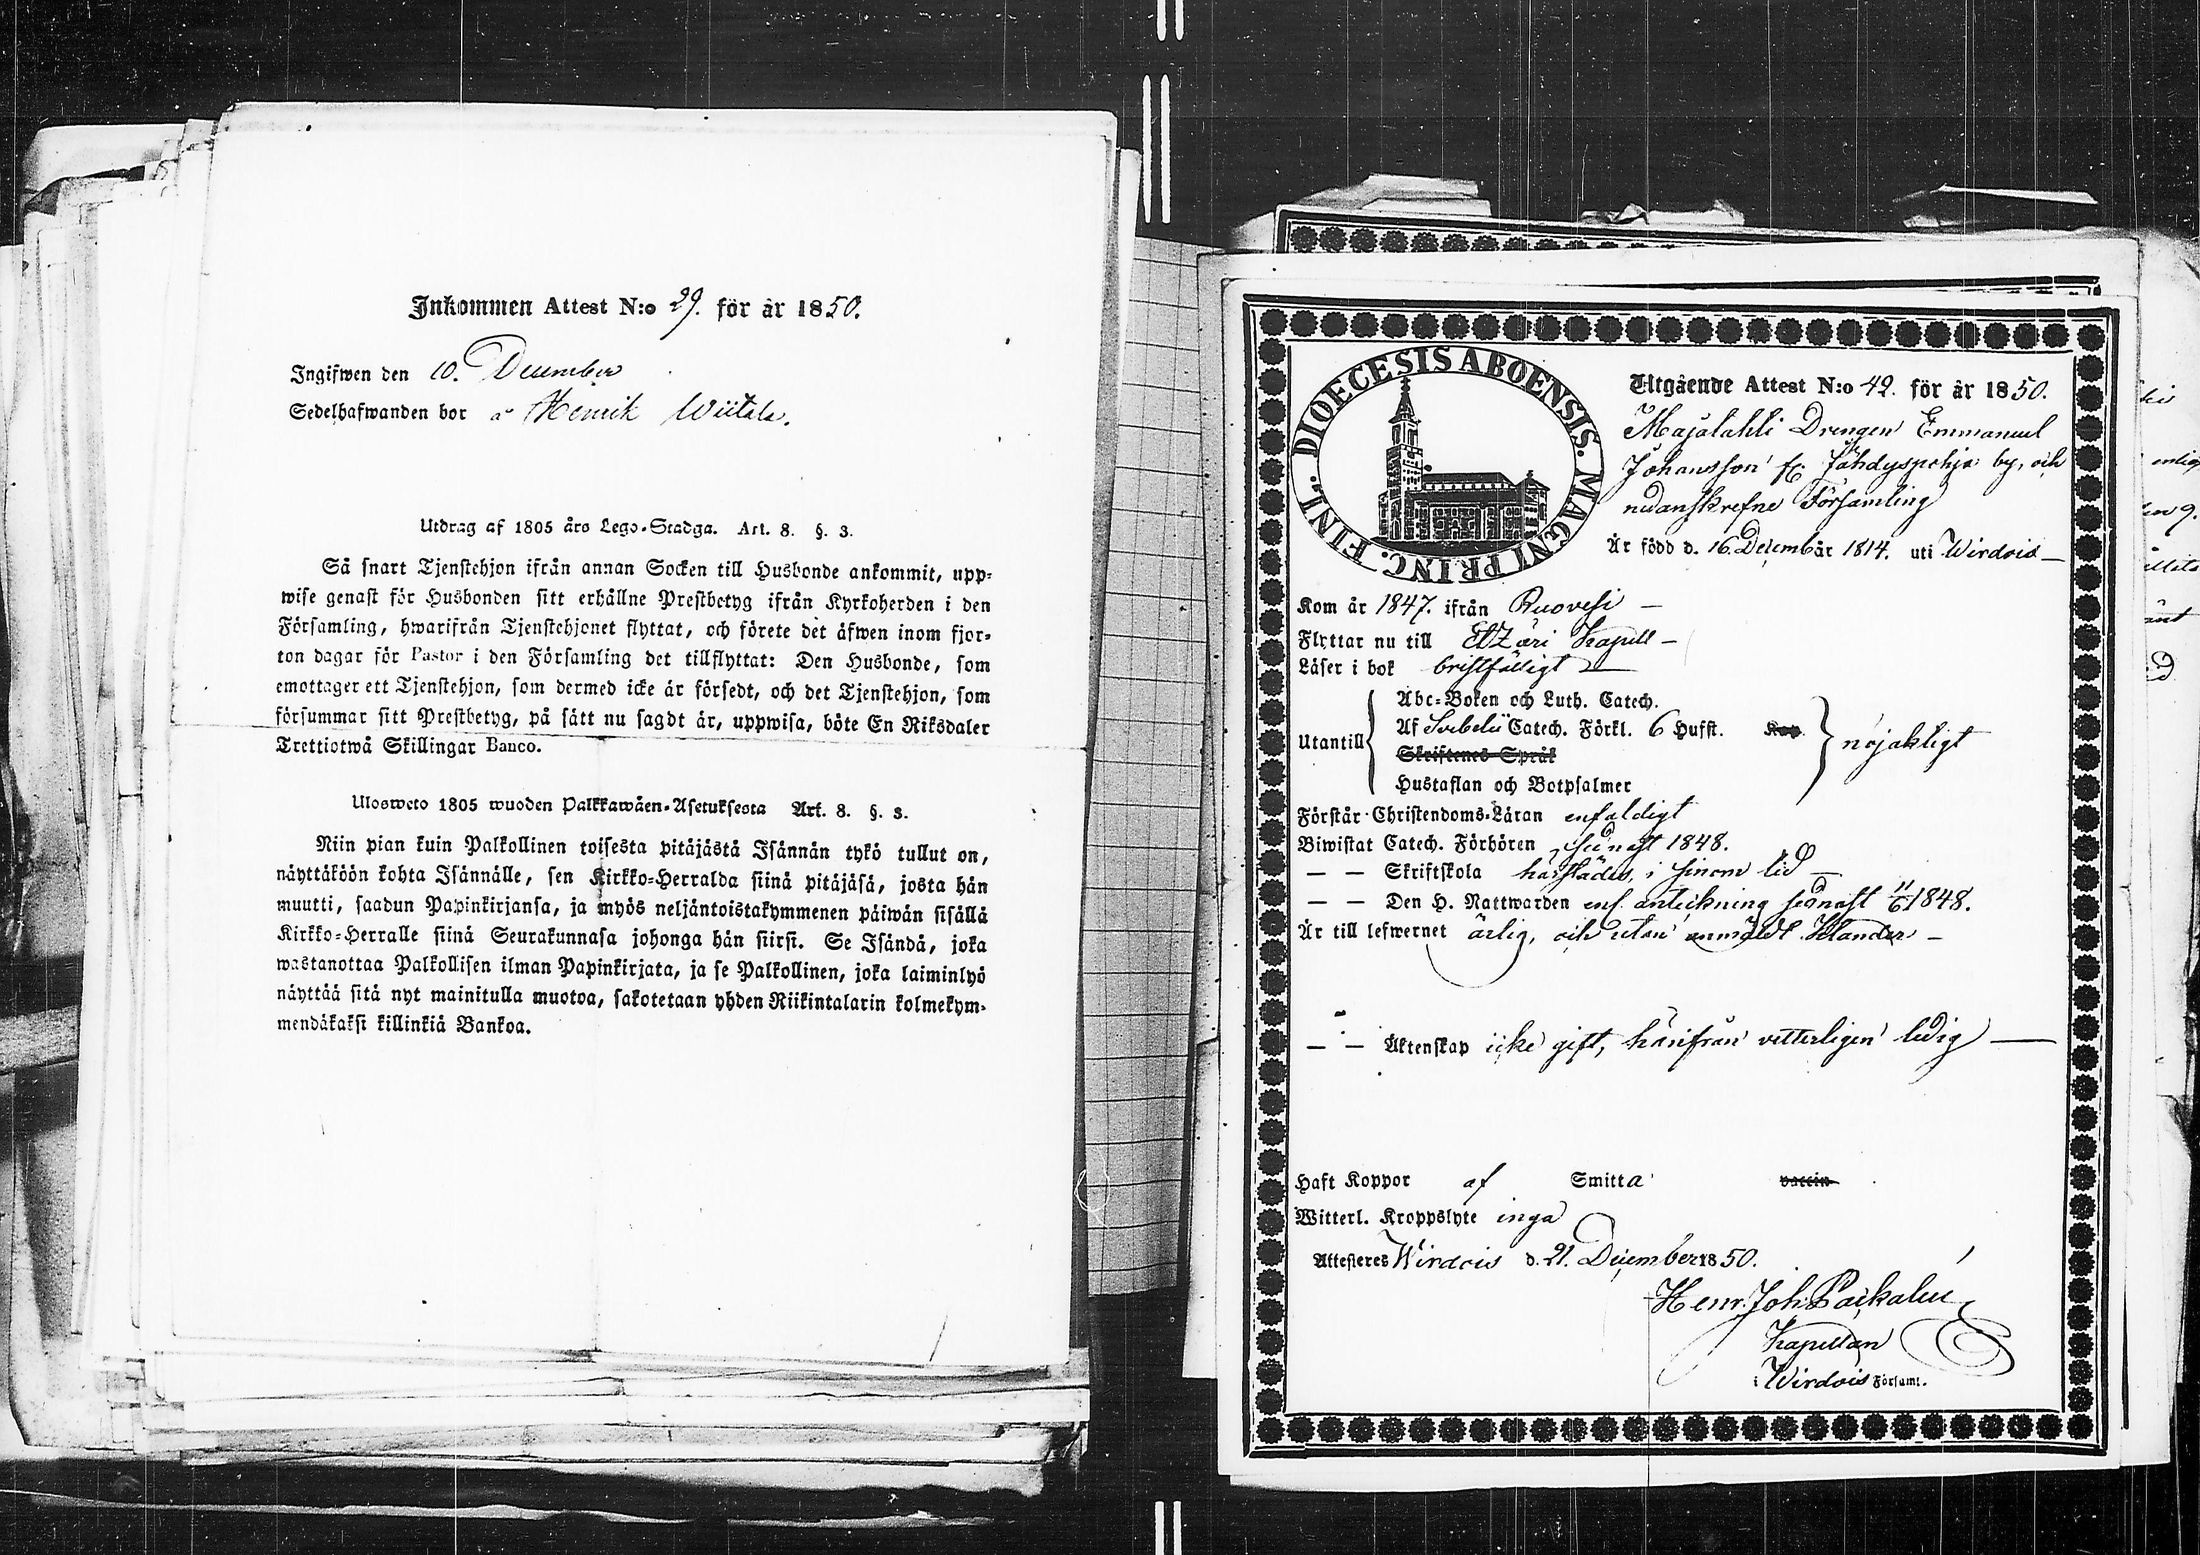 Inkommen Attest N:o 29. för år 1850.
Ingifwen den 10. December
Sedelhafwanden bor å Henrik Wiitala.
Utdrag af 1805 års Lego-Stadga. Art. 8. §. 3.
Så snart Tjenstehjon ifrån annan Socken till Husbonde ankommit, upp-
wise genast för Husbonden sitt erhållne Prestbetyg ifrån Kyrkoherden i den
Församling, hwarifrån Tjenstehjonet flyttat, och förete det äfwen inom fjor-
ton dagar för Pastor i den Församling det tillflyttat: Den Husbonde, som
emottager ett Tjenstehjon, som dermed icke är försedt, och det Tjenstehjon, som
försummar sitt Prestbetyg, på sätt nu sagdt är, uppwisa, böte En Riksdaler
Trettiotwå Skillingar Banco.
Ulosweto 1805 wuoden Palkkawäen-Asetuksesta Art. 8. §. 3.
Niin pian kuin Palkollinen toisesta pitäjästä Isännän tykö tullut on,
näyttäköön kohta Isännälle, sen Kirkko-Herralda siinä pitäjäsä, josta hän
muutti, saadun Papinkirjansa, ja myös neljäntoistakymmenen päiwän sisällä
Kirkko-Herralle siinä Seurakunnasa johonga hän siirsi. Se Isändä, joka
wastanottaa Palkollisen ilman Papinkirjata, ja se Palkollinen, joka laiminlyö
näyttää sitä nyt mainitulla muotoa, sakotetaan yhden Riikintalarin kolmekym-
mendäkaksi killinkiä Bankoa.
DIOECESIS ABOENSIS. MAGNI PRINC. FINL.
Utgående Attest N:o 42. för år 1850.
Majalahti Drengen Emmanuel
Johansson fr. Jähdyspohja by, och
nedanskrefne Församling
Är född d. 16 Decemb år 1814. uti Wirdois
Kom år 1847. ifrån Ruovesi
Flyttar nu till Etzäri Kapell
Läser i bok bristfälligt
Abc-Boken och Luth. Catech.
Utantill Af Svebelii Catech. Förkl. 6 Hufst. Kap nöjaktigt
Skriftenes Språk
Hustaflan och Botpsalmer
Förstår Christendoms-Läran enfaldigt
Biwistat Catech. Förhören sednast 1848.
— — Skriftskola härstädes, i sinom tid
— — Den H. Nattwarden enl. anteckning sednast 11/6 1848.
Är till lefwernet ärlig, och utan anmäldt klander
— — Äktenskap icke gift, härifrån vetterligen ledig
Haft Koppor af Smitta vaccin
Witterl. Kroppslyte inga
Attesteres Wirdois d. 21. December 1850.
Henr. Joh.
Kapellan
i Wirdois Församl.